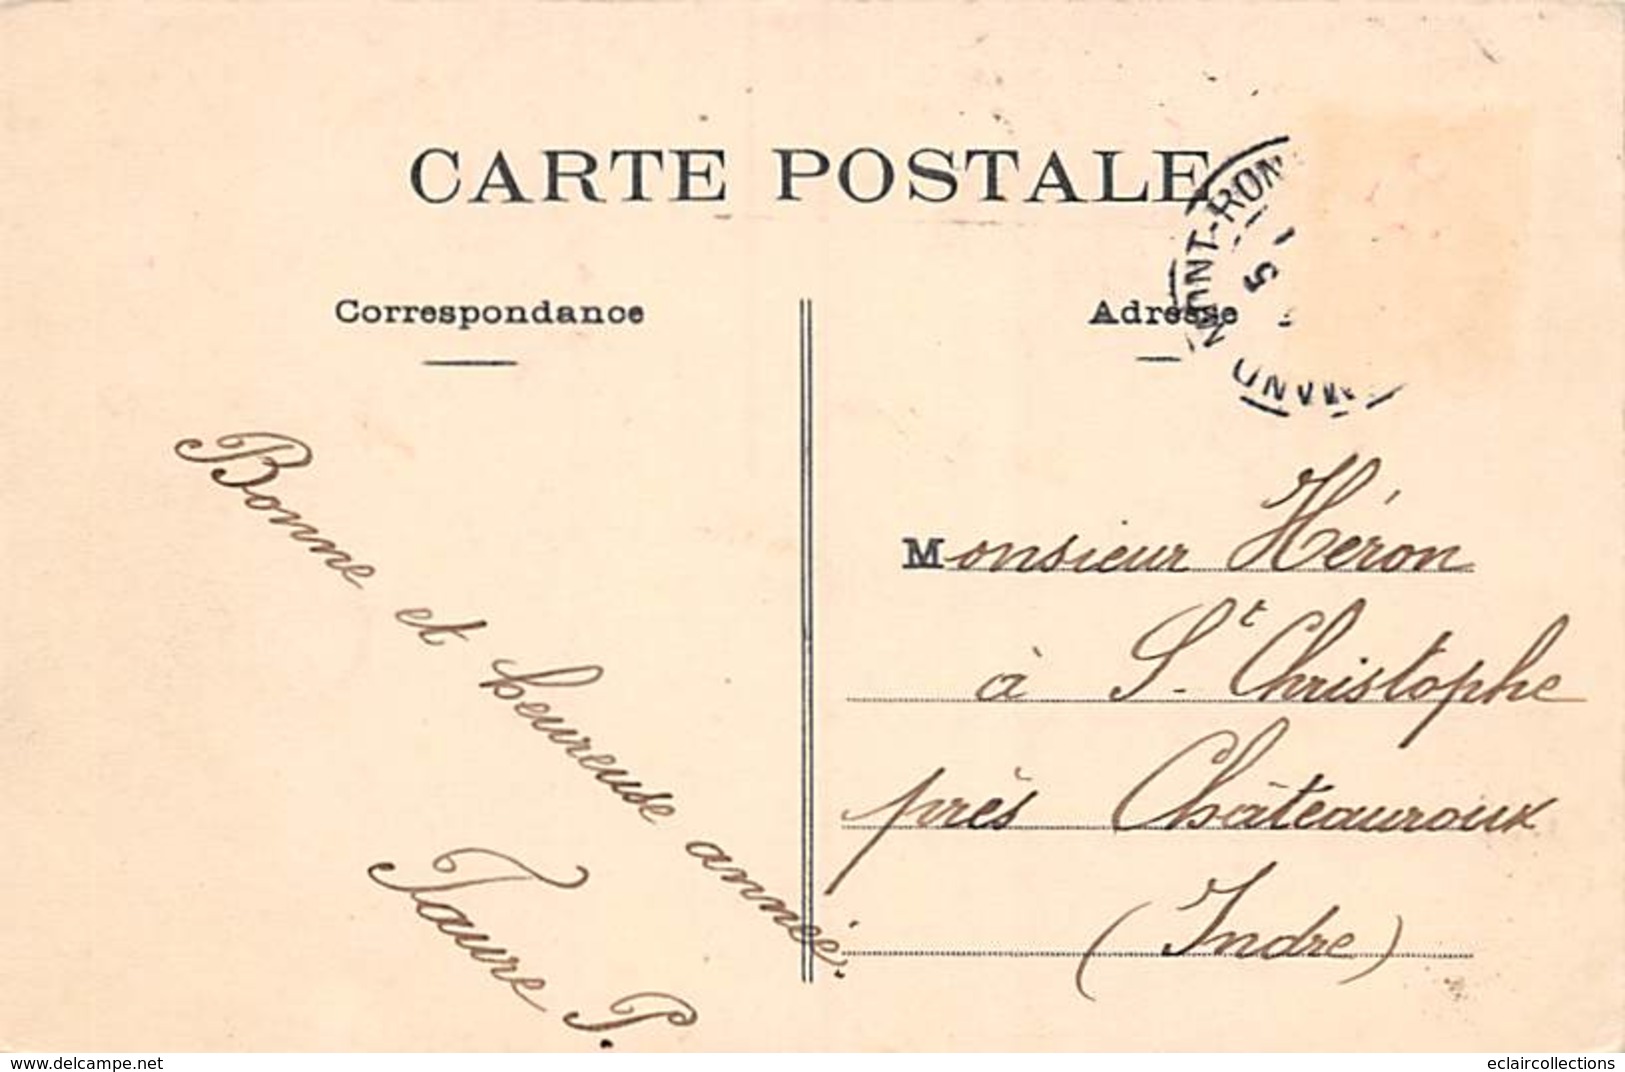 CARTE POSTALE
Correspondance
Adresse
MONT-ROM
Bonne et heureuse année.
Faure P.
Monsieur Héron
à St Christophe
près Châteauroux
(Indre)
www.delcampe.net
eclaircollections